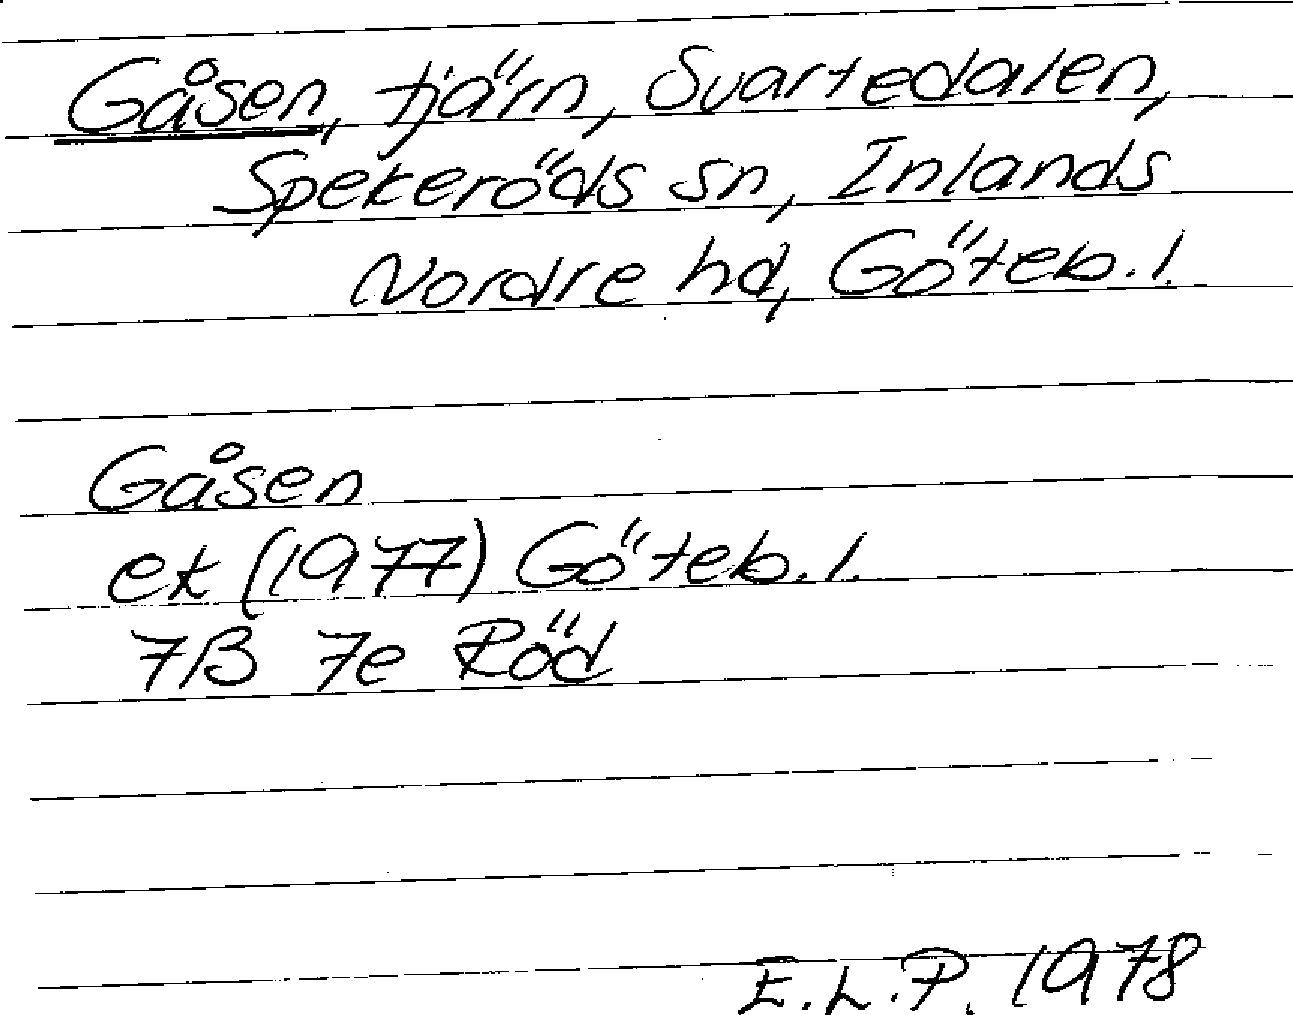 Gåsen, tjärn, Svartedalen,
Spekeröds sn, Inlands
Nordre hd, Göteb. l.
Gåsen
ek (1977) Göteb. l.
7B 7e Röd
E.L.P. 1978